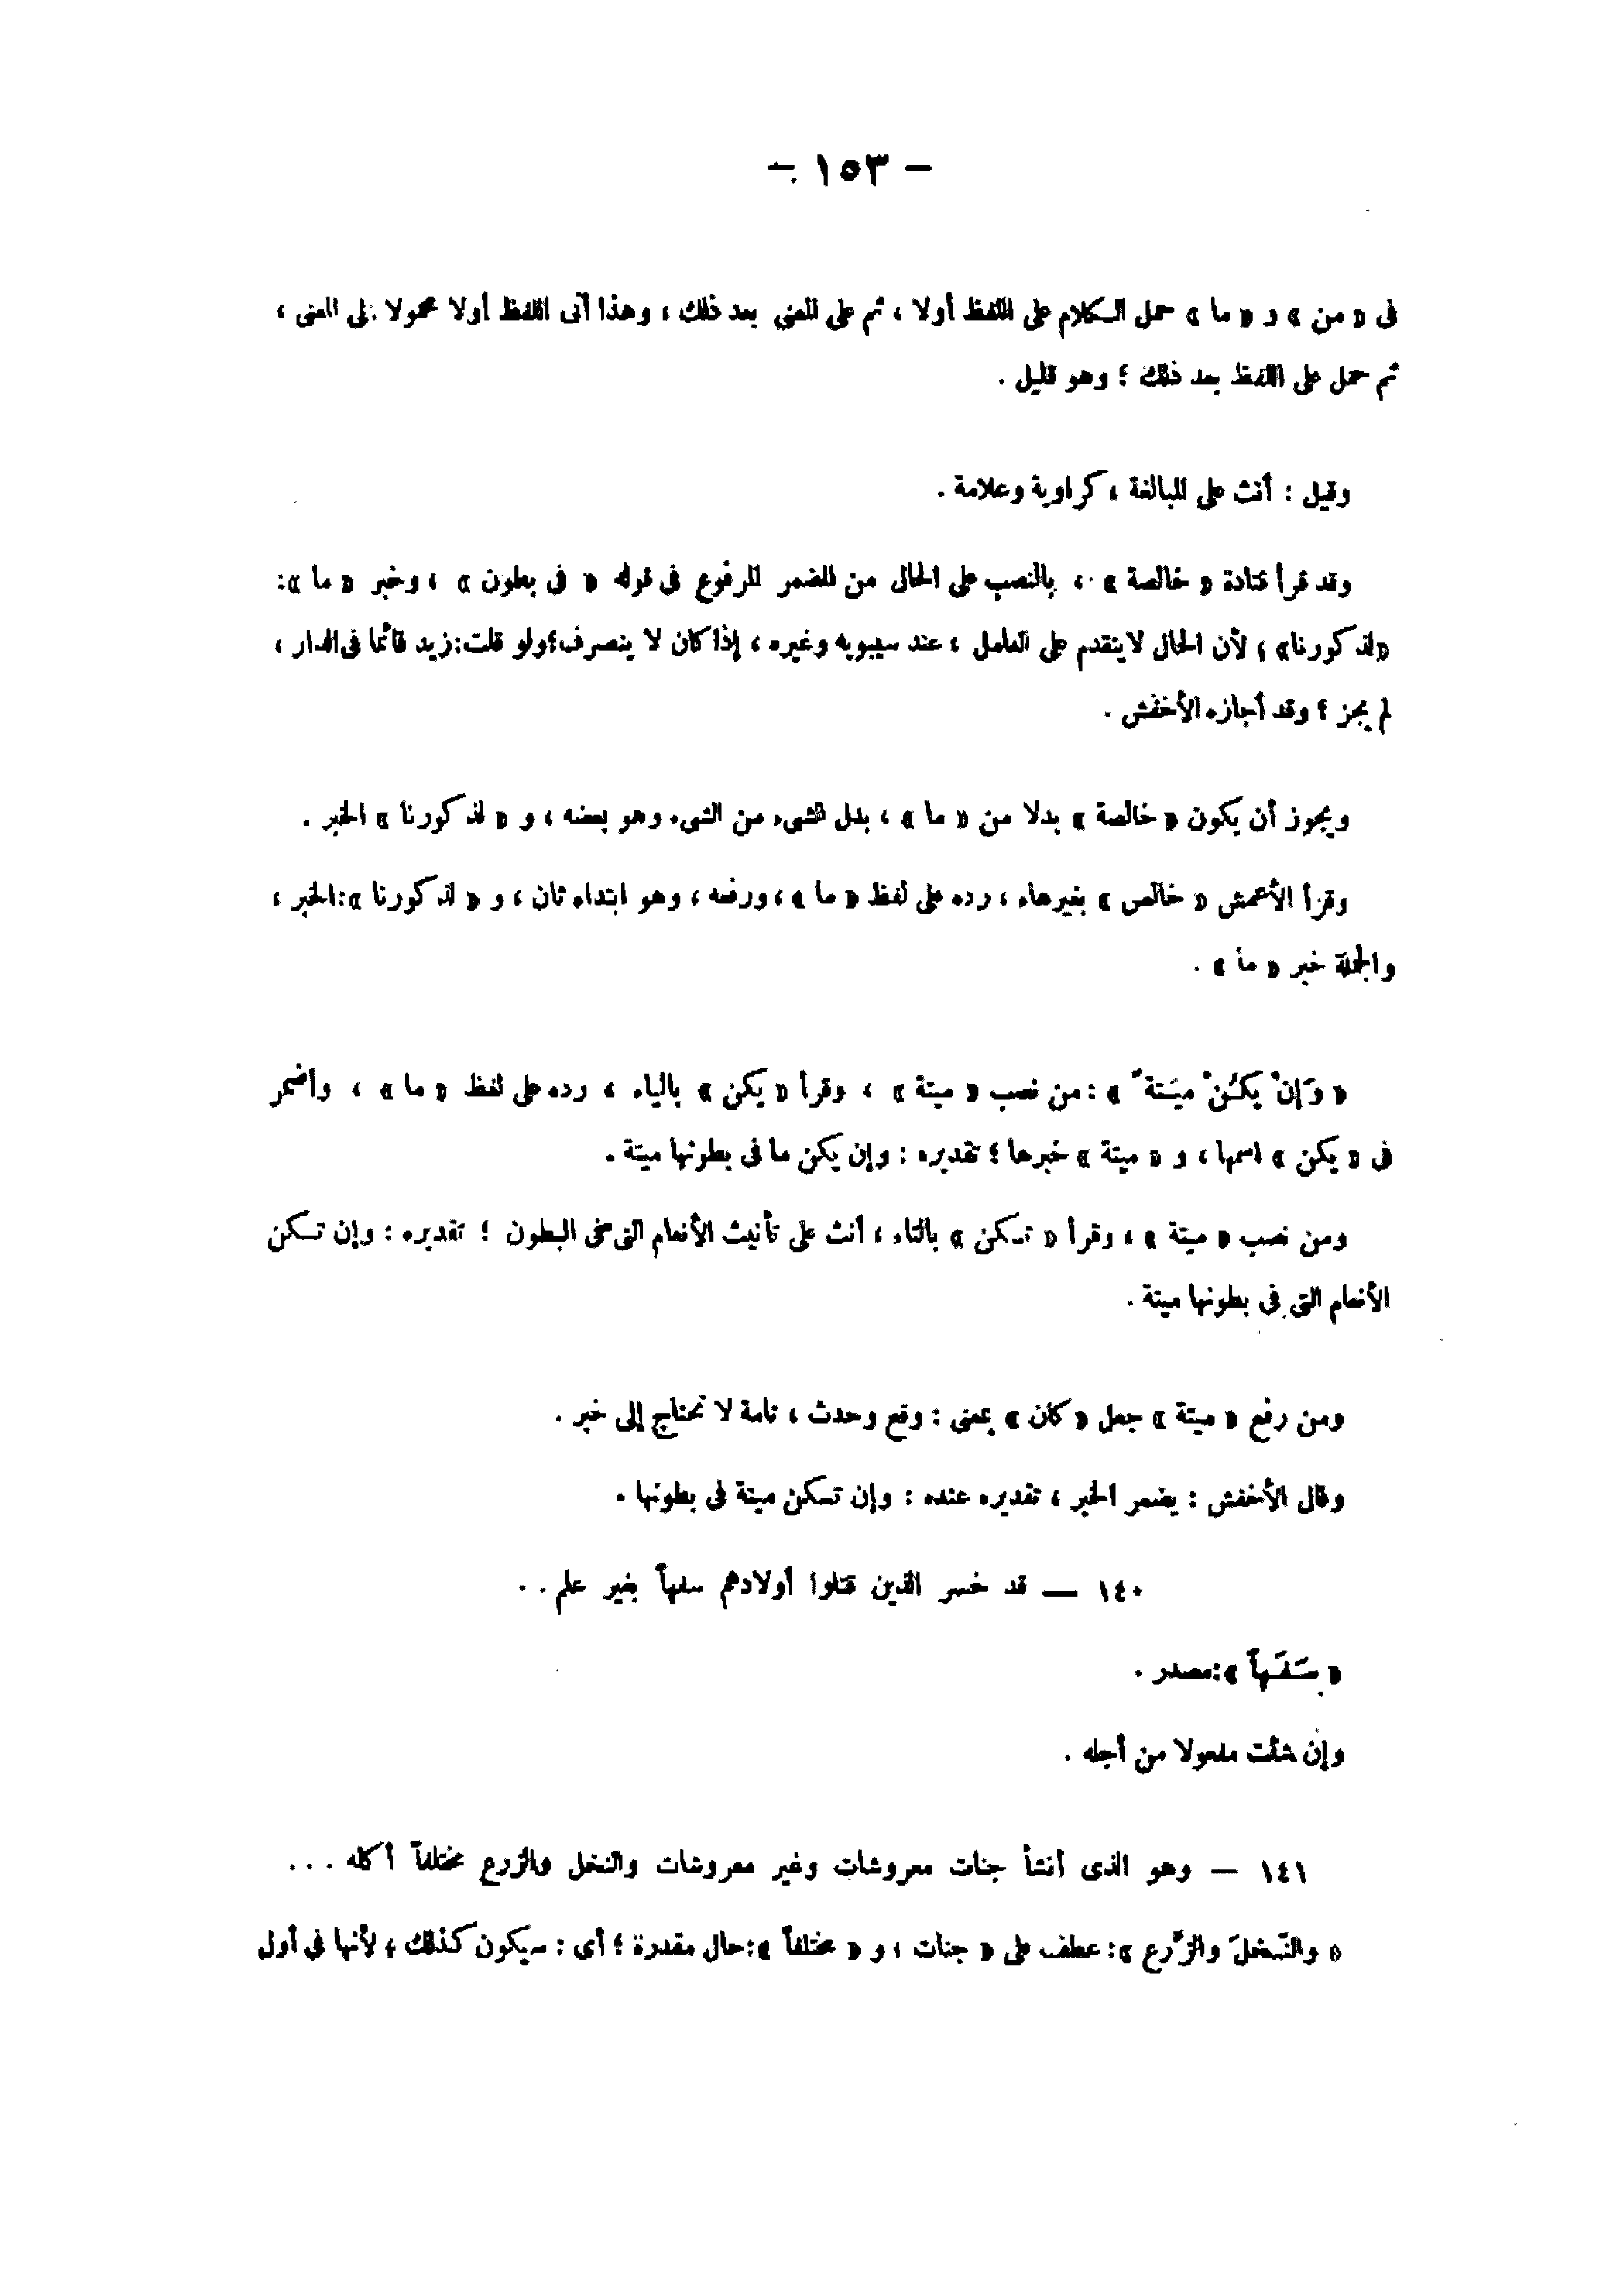 — ١٥٣ —
فى « من » و « ما » حمل الكلام على اللفظ أولا ، ثم على المعنى بعد ذلك ، وهذا آتى اللفظ أولا محمولا على المعنى ،
ثم حمل على اللفظ بعد ذلك ؛ وهو قليل .
وقيل : أنث على المبالغة ، كراوية وعلامة .
وقد قرأ قتادة « خالصة » ، بالنصب على الحال من المضمر المرفوع فى قوله « فى بطون » ، وخبر « ما »:
«لذكورنا» ؛ لأن الحال لا يتقدم على العامل ، عند سيبويه وغيره ، إذا كان لا ينصرف؛ ولو قلت: زيد قائما فى الدار ،
لم يجز ؛ وقد أجازه الأخفش .
ويجوز أن يكون « خالصة » بدلا من « ما » ، بدل الشىء من الشىء وهو بعضه ، و « لذكورنا » الخبر .
وقرأ الأعمش « خالص » بغير هاء ، رده على لفظ « ما » ، ورفعه ، وهو ابتداء ثان ، و « لذكورنا »: الخبر ،
والجملة خبر « ما » .
« وَإِنْ يَكُنْ مَيْتة » : من نصب « ميتة » ، وقرأ « يكن » بالياء ، رده على لفظ « ما » ، وأضمر
فى « يكن » اسمها ، و « ميتة » خبرها ؛ تقديره : وإن يكن ما فى بطونها ميتة .
ومن نصب « ميتة » ، وقرأ « تكن » بالتاء ، أنث على تأنيث الأنعام التى فى البطون ؛ تقديره : وإن تكن
الأنعام التى فى بطونها ميتة .
ومن رفع « ميتة » جعل « كان » بمعنى : وقع وحدث ، تامة لا تحتاج إلى خبر .
وقال الأخفش : يضمر الخبر ، تقديره عنده : وإن تكن ميتة فى بطونها .
١٤٠ — قد خسر الذين قتلوا أولادهم سفهاً بغير علم . .
« سَفَهاً »: مصدر .
وإن شئت مفعولا من أجله .
١٤١ — وهو الذى أنشأ جنات معروشات وغير معروشات والنخل والزرع مختلفاً أكله . . .
« والنّخلَ والزّرع »: عطف على « جنات ، و « مختلفاً »: حال مقدرة ؛ أى : سيكون كذلك ، لأنها فى أول